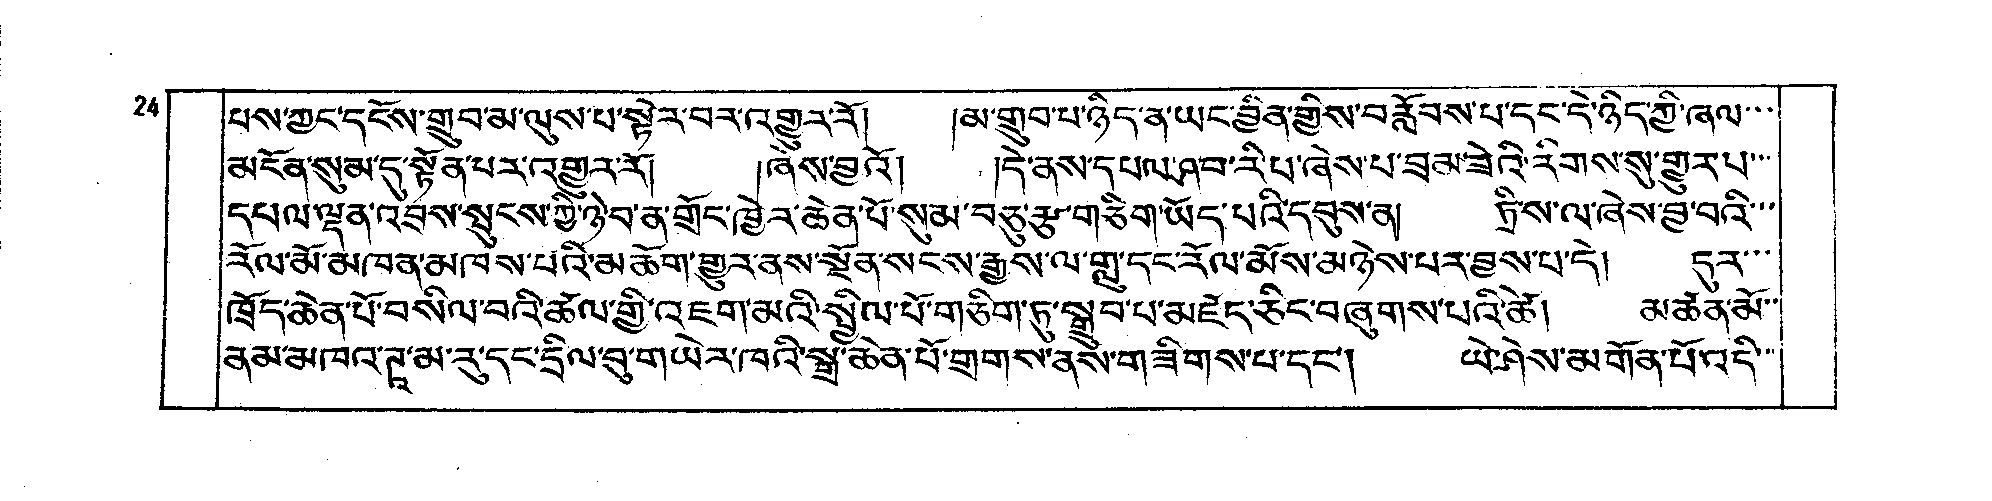 24
པས་ཀྱང་དངོས་གྲུབ་མ་ལུས་པ་སྟེར་བར་འགྱུར་རོ། །མ་གྲུབ་པ་ཉིད་ན་ཡང་བྱིན་གྱིས་བརློབས་པ་དང་དེ་ཉིད་ཀྱི་ཞལ་་་
མངོན་སུམ་དུ་སྟོན་པར་འགྱུར་རོ། །ཞེས་བྱའོ། །དེ་ནས་དཔལ་ཤབ་རིཔ་ཞེས་པ་བྲམ་ཟེའི་རིགས་སུ་གྱུར་པ་་་
དཔལ་ལྡན་འབྲས་སྤུངས་ཀྱི་ཉེབ་ན་གྲོང་ཁྱེར་ཆེན་པོ་སུམ་བཅུ་རྩ་གཅིག་ཡོད་པའི་དབུས་ན། ཏི་ས་ལ་ཞེས་བྱ་བའི་་་
རོལ་མོ་མཁན་མཁས་པའི་མཆོག་གྱུར་ནས་སྔོན་སངས་རྒྱས་ལ་གླུ་དང་རོལ་མོས་མཉེས་པར་བྱས་པ་དེ། དུར་་་
ཁྲོད་ཆེན་པོ་བསིལ་བའི་ཚལ་གྱི་འཇག་མའི་སྤྱིལ་པོ་གཅིག་ཏུ་སྒྲུབ་པ་མཛད་ཅིང་བཞུགས་པའི་ཚེ། མཚན་མོ་་
ནམ་མཁའ་ཌཱ་མ་རུ་དང་དྲིལ་བུ་གཡེར་ཁའི་སྒྲ་ཆེན་པོ་གྲགས་ནས་གཟིགས་པ་དང་། ཡེ་ཤེས་མགོན་པོ་འདི་་